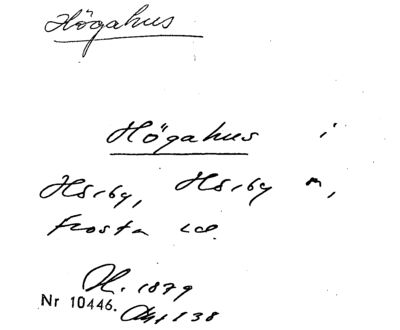 Högahus
Högahus i
Hörby, Hörby n,
Frosta hd.
H. 1879
Nr 10446. Akt 138